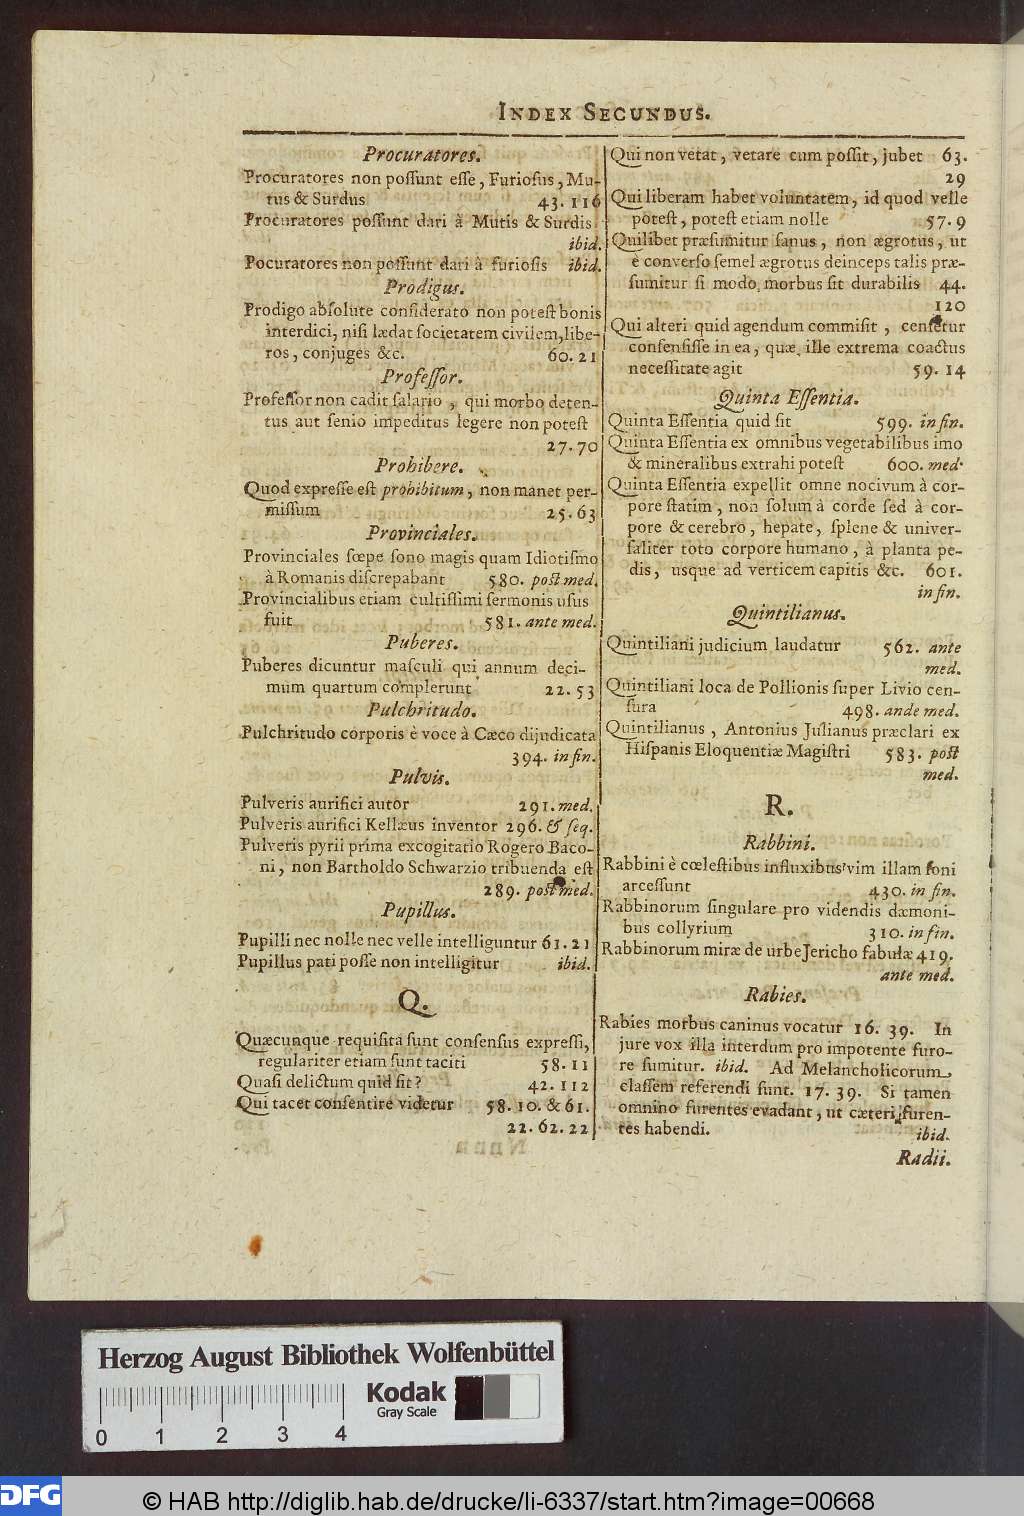 INDEX SECUNDUS.
Procuratores.
Procuratores non poſſunt eſſe, Furioſus, Mu-
tus & Surdus 43. 116
Procuratores poſſunt dari à Mutis & Surdis
ibid.
Pocuratores non poſſunt dari à furioſis ibid.
Prodigus.
Prodigo abſolute conſiderato non poteſt bonis
interdici, niſi lædat ſocietatem civilem, libe-
ros, conjuges &c. 60. 21
Profeſſor.
Profeſſor non cadit ſalario, qui morbo deten-
tus aut ſenio impeditus legere non poteſt
27. 70
Prohibere.
Quod expreſſe eſt prohibitum, non manet per-
miſſum 25. 63
Provinciales.
Provinciales ſœpe ſono magis quam Idiotiſmo
à Romanis diſcrepabant 580. poſt med.
Provincialibus etiam cultiſſimi ſermonis uſus
fuit 581. ante med.
Puberes.
Puberes dicuntur maſculi qui annum deci-
mum quartum complerunt 22. 53
Pulchritudo.
Pulchritudo corporis è voce à Cæco dijudicata
394. in fin.
Pulvis.
Pulveris aurifici autor 291. med.
Pulveris aurifici Kellæus inventor 296. & ſeq.
Pulveris pyrii prima excogitatio Rogero Baco-
ni, non Bartholdo Schwarzio tribuenda eſt
289. poſt med.
Pupillus.
Pupilli nec nolle nec velle intelliguntur 61. 21
Pupillus pati poſſe non intelligitur ibid.
Q.
Quæcunque requiſita ſunt conſenſus expreſſi,
regulariter etiam ſunt taciti 58. 11
Quaſi delictum quid ſit? 42. 112
Qui tacet conſentire videtur 58. 10. & 61.
22. 62. 22
Qui non vetat, vetare cum poſſit, jubet 63.
29
Qui liberam habet voluntatem, id quod velle
poteſt, poteſt etiam nolle 57. 9
Quilibet præſumitur ſanus, non ægrotus, ut
è converſo ſemel ægrotus deinceps talis præ-
ſumitur ſi modo morbus ſit durabilis 44.
120
Qui alteri quid agendum commiſit, cenſetur
conſenſiſſe in ea, quæ ille extrema coactus
neceſſitate agit 59. 14
Quinta Eſſentia.
Quinta Eſſentia quid ſit 599. in fin.
Quinta Eſſentia ex omnibus vegetabilibus imo
& mineralibus extrahi poteſt 600. med.
Quinta Eſſentia expellit omne nocivum à cor-
pore ſtatim, non ſolum à corde ſed à cor-
pore & cerebro, hepate, ſplene & univer-
ſaliter toto corpore humano, à planta pe-
dis, usque ad verticem capitis &c. 601.
in fin.
Quintilianus.
Quintiliani judicium laudatur 562. ante
med.
Quintiliani loca de Pollionis ſuper Livio cen-
ſura 498. ande med.
Quintilianus, Antonius Julianus præclari ex
Hiſpanis Eloquentiæ Magiſtri 583. poſt
med.
R.
Rabbini.
Rabbini è cœleſtibus influxibus vim illam ſoni
arceſſunt 430. in fin.
Rabbinorum ſingulare pro videndis dæmoni-
bus collyrium 310. in fin.
Rabbinorum miræ de urbe Jericho fabulæ 419.
ante med.
Rabies.
Rabies morbus caninus vocatur 16. 39. In
jure vox illa interdum pro impotente furo-
re ſumitur. ibid. Ad Melancholicorum
claſſem referendi ſunt. 17. 39. Si tamen
omnino furentes evadant, ut cæteri furen-
tes habendi. ibid.
Radii.
Herzog August Bibliothek Wolfenbüttel
Kodak
Gray Scale
0 1 2 3 4
DFG
© HAB http://diglib.hab.de/drucke/li-6337/start.htm?image=00668